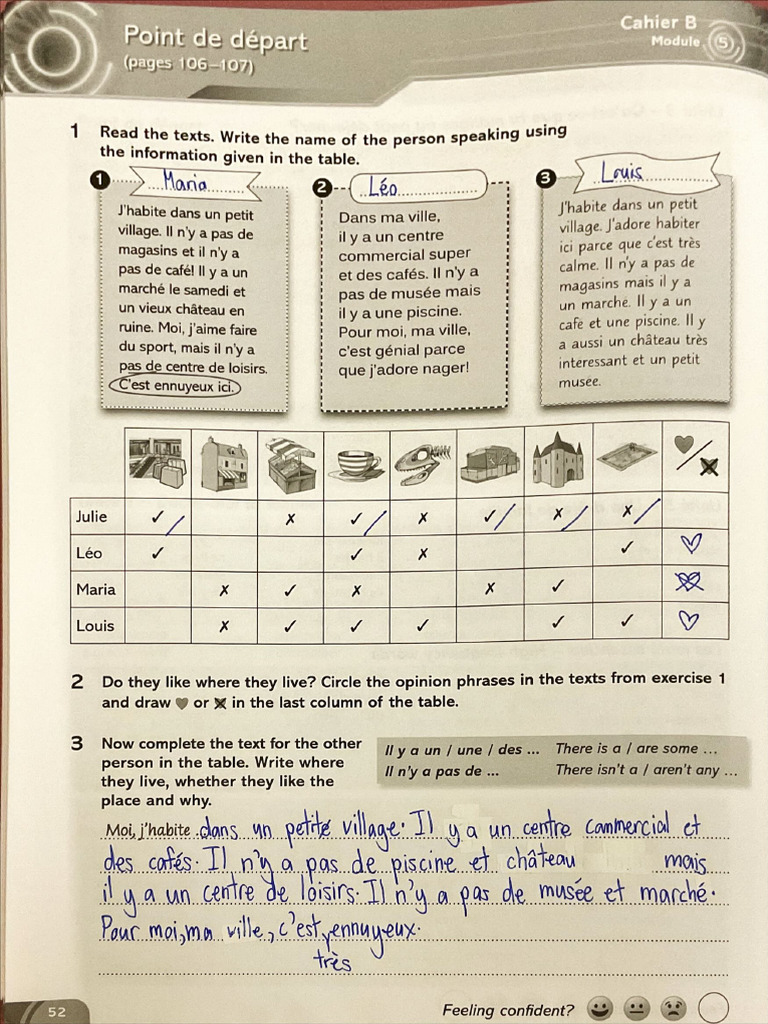 Point de départ
(pages 106–107)
Cahier B
Module 5
1 Read the texts. Write the name of the person speaking using
the information given in the table.
1 Maria
J'habite dans un petit
village. Il n'y a pas de
magasins et il n'y a
pas de café! Il y a un
marché le samedi et
un vieux château en
ruine. Moi, j'aime faire
du sport, mais il n'y a
pas de centre de loisirs.
C'est ennuyeux ici.
2 Léo
Dans ma ville,
il y a un centre
commercial super
et des cafés. Il n'y a
pas de musée mais
il y a une piscine.
Pour moi, ma ville,
c'est génial parce
que j'adore nager!
3 Louis
J'habite dans un petit
village. J'adore habiter
ici parce que c'est très
calme. Il n'y a pas de
magasins mais il y a
un marché. Il y a un
café et une piscine. Il y
a aussi un château très
intéressant et un petit
musée.
Julie ✓ ✗ ✓ ✗ ✓ ✗ ✗
Léo ✓ ✓ ✗ ✓
Maria ✗ ✓ ✗ ✗ ✓
Louis ✗ ✓ ✓ ✓ ✓ ✓
2 Do they like where they live? Circle the opinion phrases in the texts from exercise 1
and draw ♥ or ✗ in the last column of the table.
3 Now complete the text for the other
person in the table. Write where
they live, whether they like the
place and why.
Il y a un / une / des ... There is a / are some ...
Il n'y a pas de ... There isn't a / aren't any ...
Moi, j'habite dans un petité village. Il y a un centre commercial et
des cafés. Il n'y a pas de piscine et château mais
il y a un centre de loisirs. Il n'y a pas de musée et marché.
Pour moi, ma ville, c'est ennuyeux.
très
52
Feeling confident?